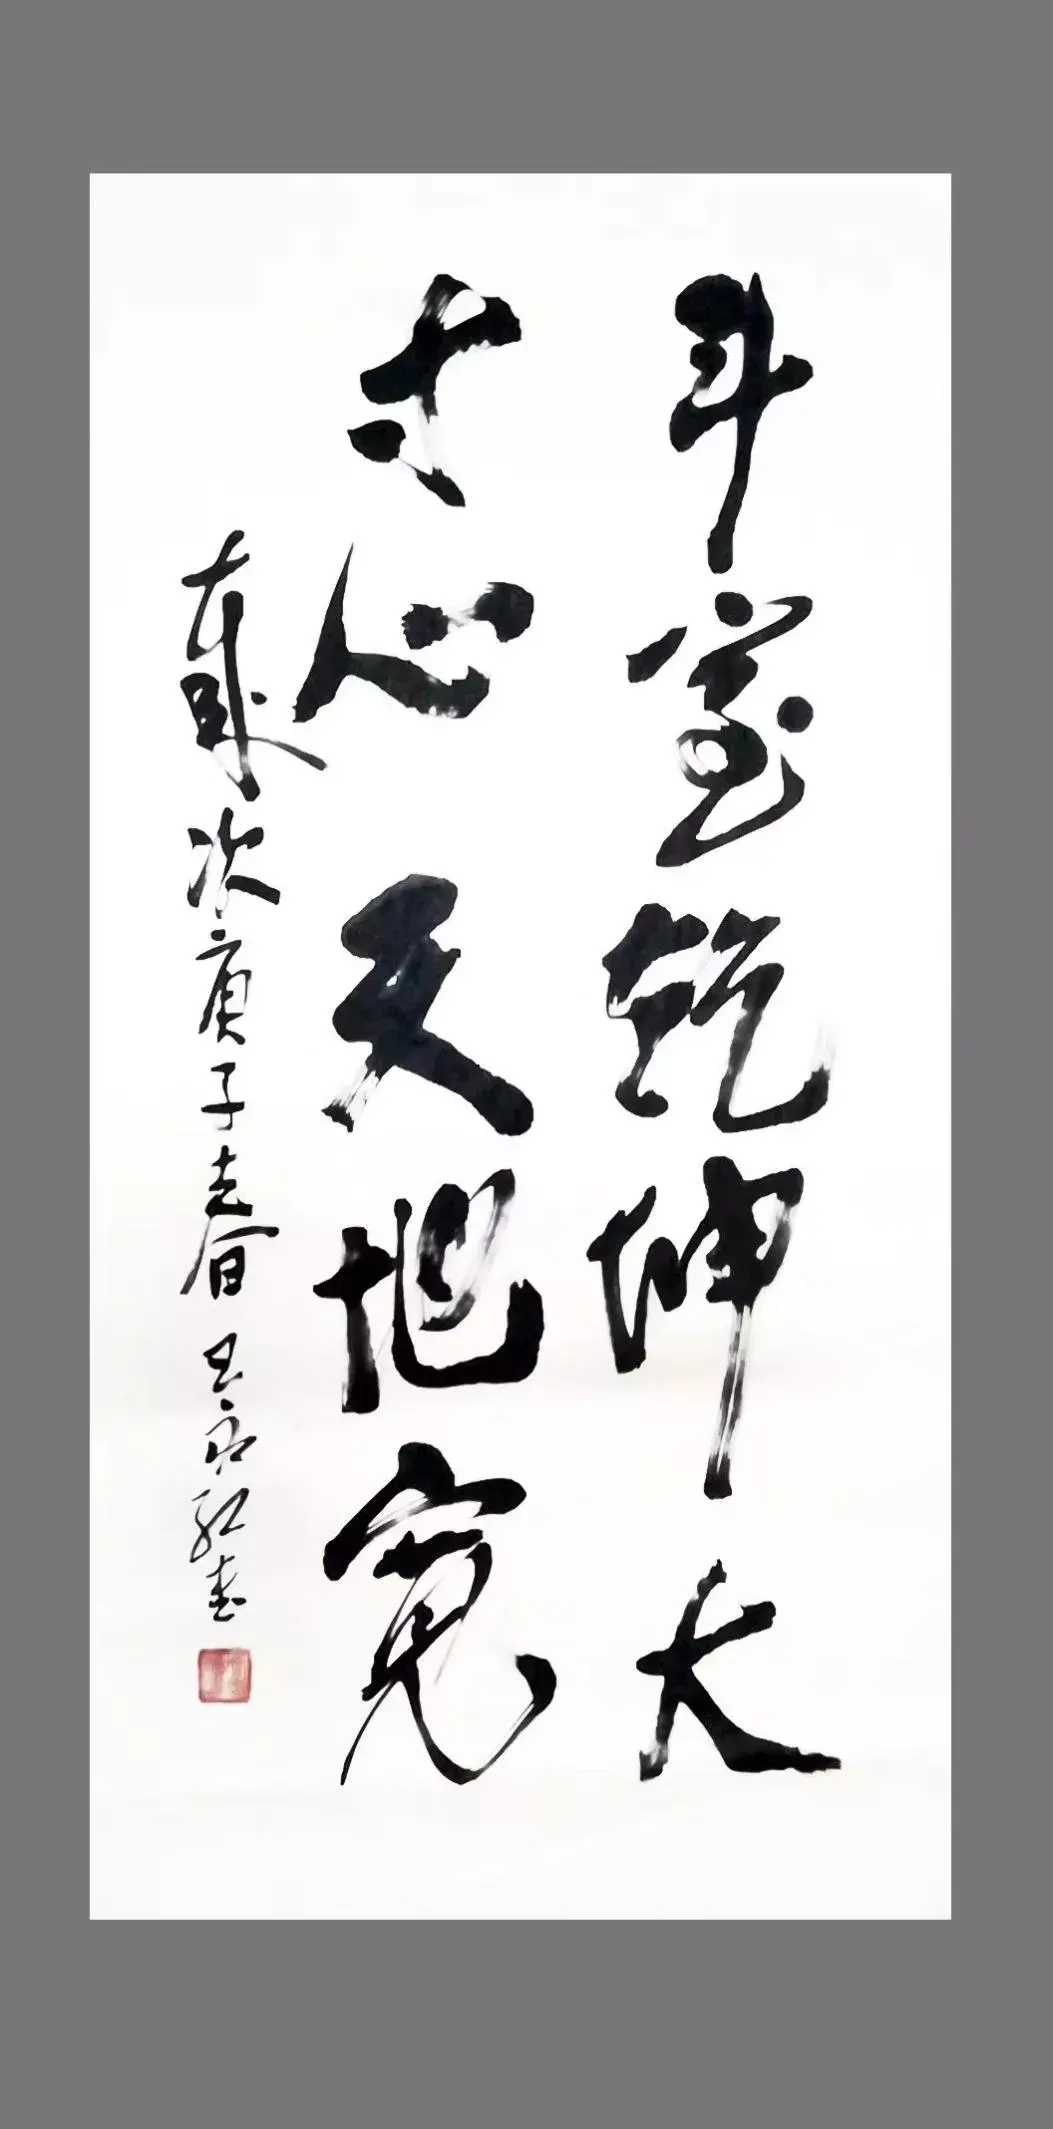 斗室乾坤大
寸心天地宽
岁次庚子春 王永红书